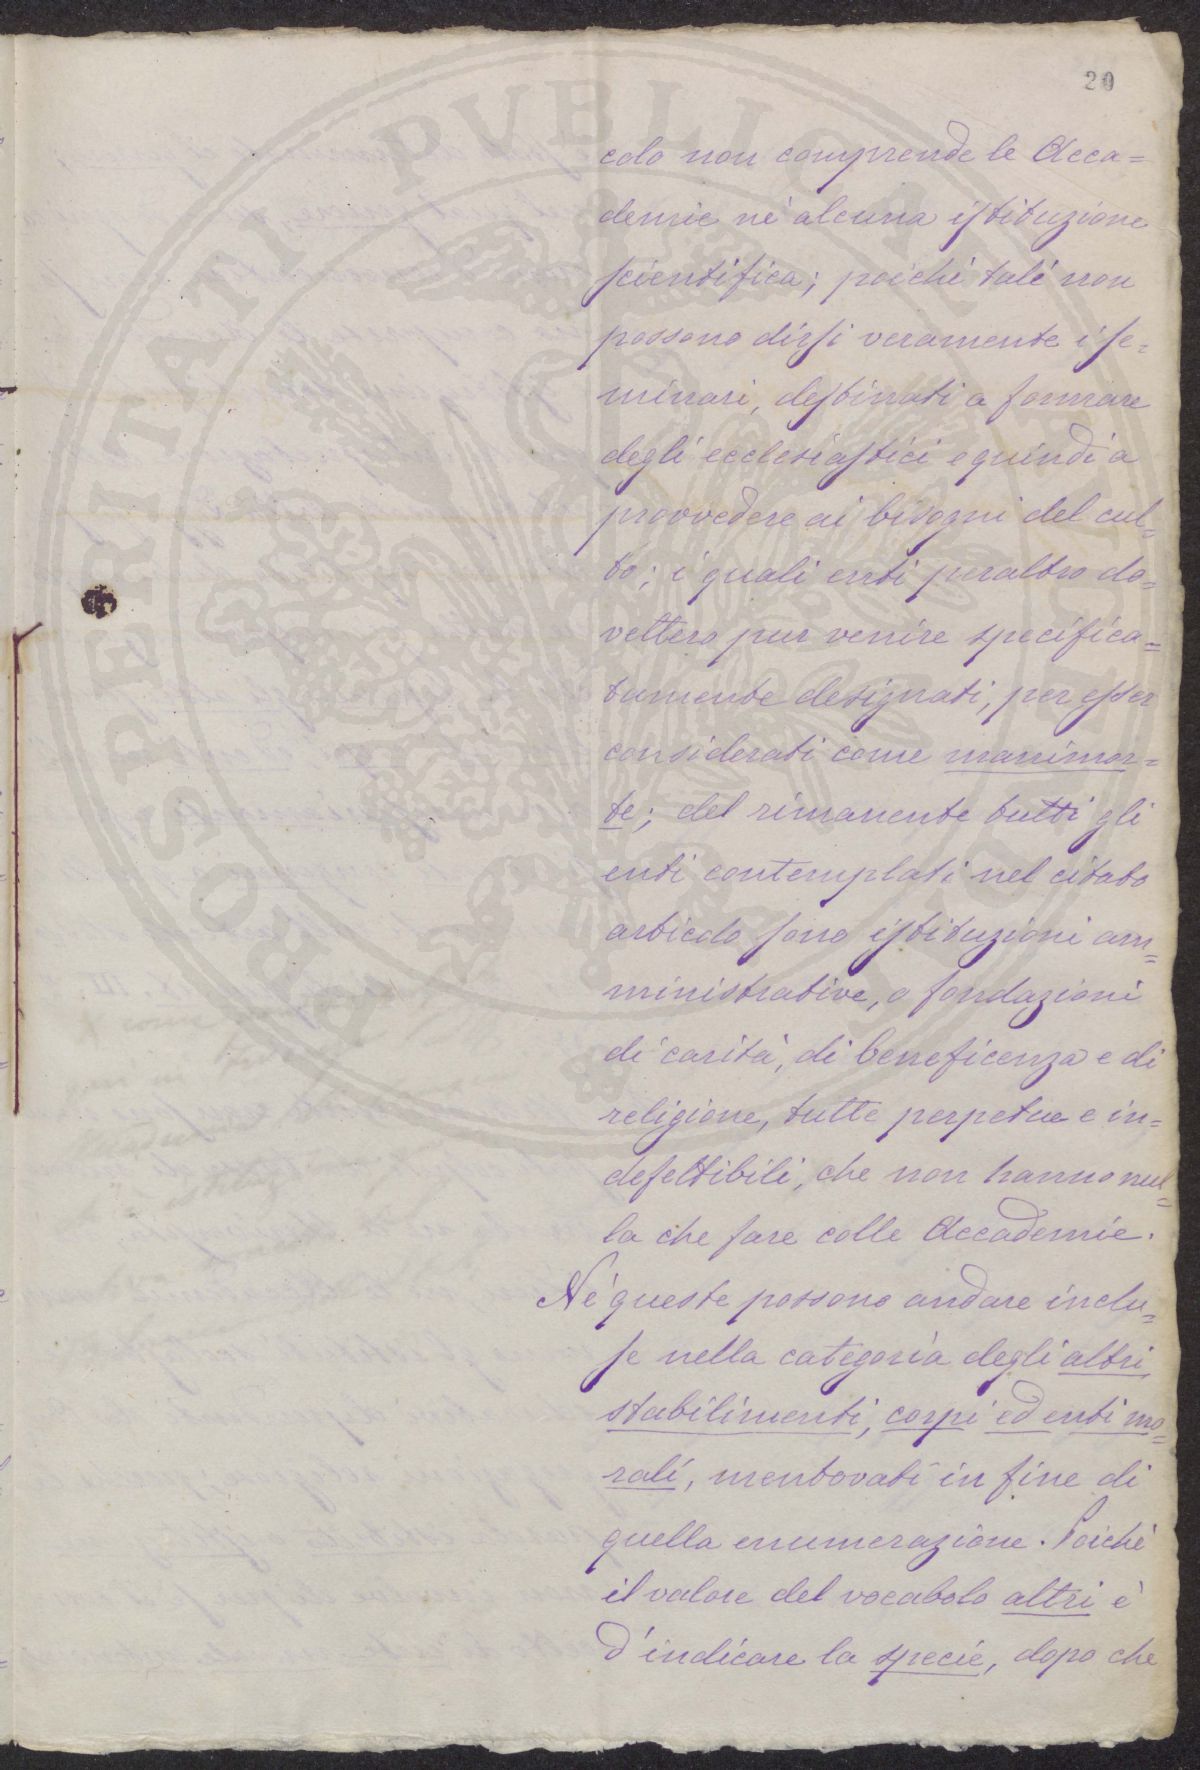 20
colo non comprende le Acca=
demie nè alcuna istituzione
scientifica; poichè tali non
possono dirsi veramente i se=
minari, destinati a formare
degli ecclesiastici e quindi a
provvedere ai bisogni del cul=
to; i quali enti peraltro do=
vettero pur venire specifica=
tamente designati, per esser
considerati come manimor=
te; del rimanente tutti gli
enti contemplati nel citato
articolo sono istituzioni am=
ministrative, o fondazioni
di carità, di beneficenza e di
religione, tutte perpetue e in=
defettibili, che non hanno nul=
la che fare colle Accademie.
Nè queste possono andare inclu=
se nella categoria degli altri
stabilimenti, corpi ed enti mo=
rali, mentovati in fine di
quella enumerazione. Poichè
il valore del vocabolo altri è
d'indicare la specie, dopo che
PROSPERITATI PVBLICAE